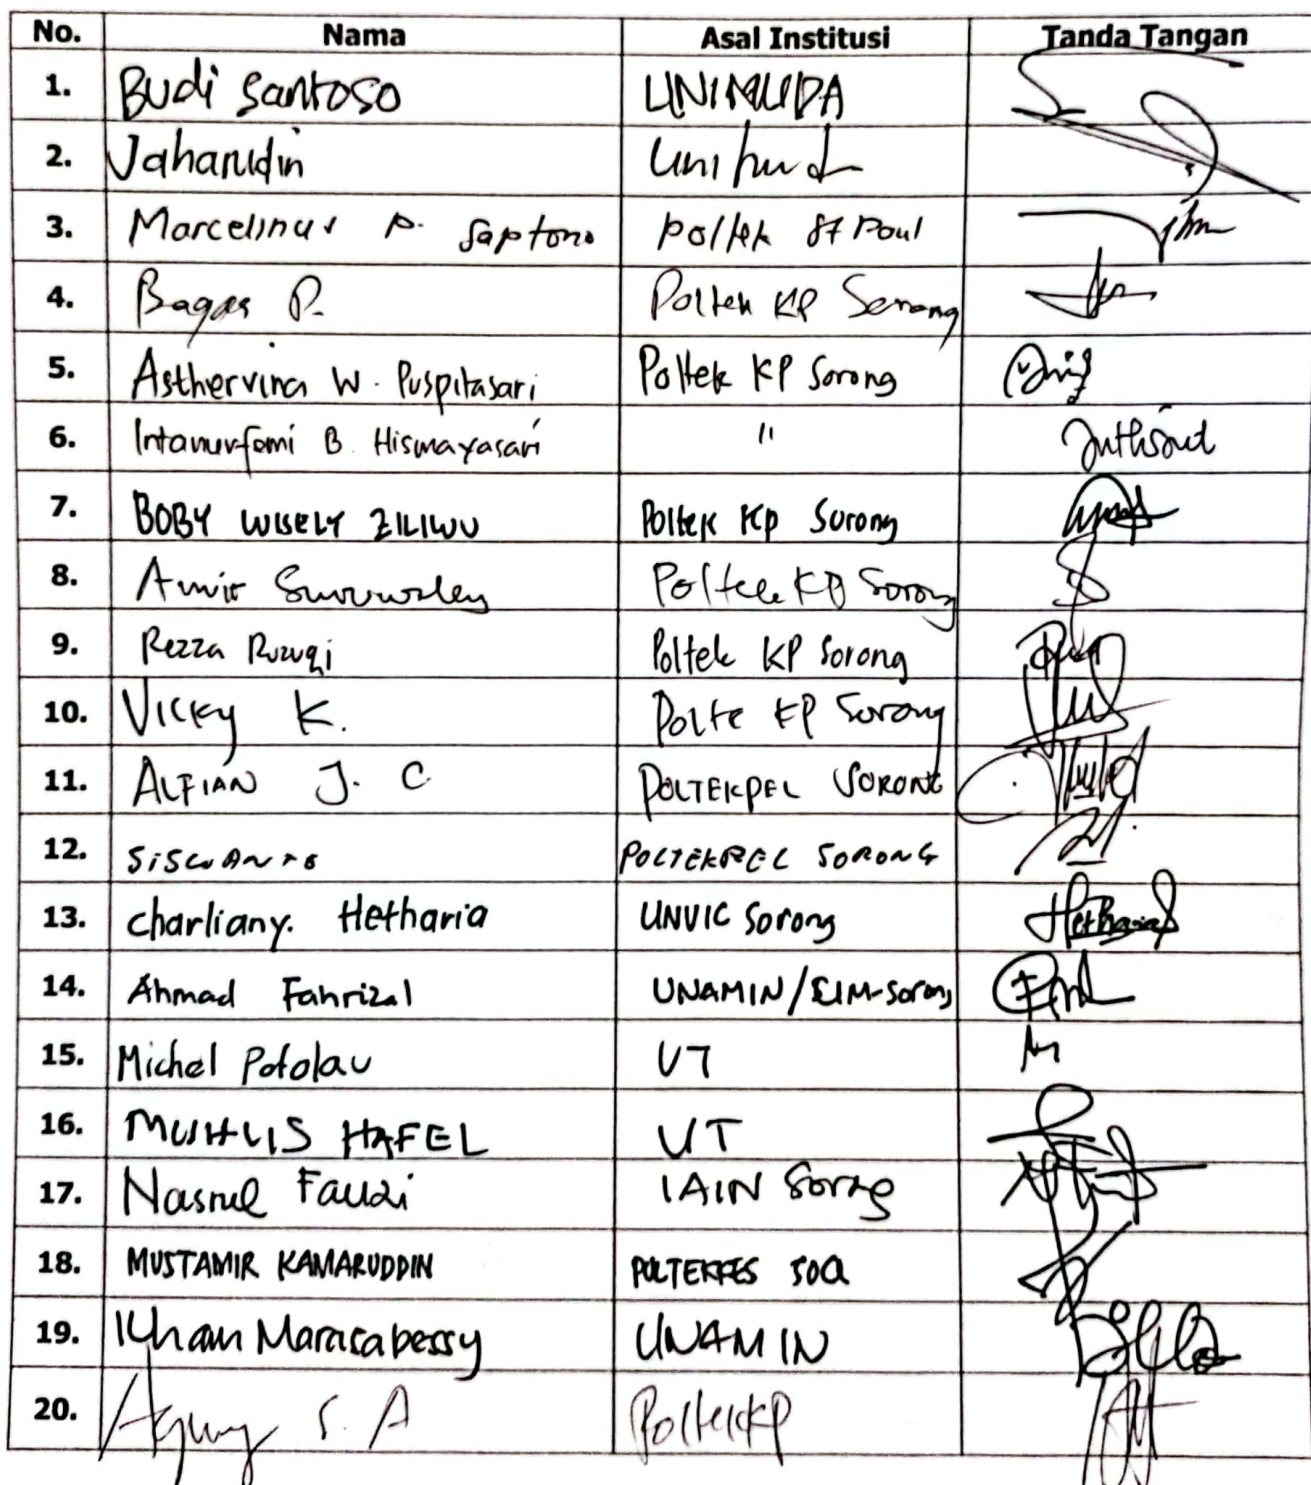 No. Nama Asal Institusi Tanda Tangan
1. Budi Santoso UNIMUDA
2. Jaharudin
3. Marcelinus A. Saptono Poltek St Paul
4. Bagas P. Poltek KP Sorong
5. Asthervina W. Puspitasari Poltek KP Sorong
6. Intanurfemi B. Hismayasari "
7. BOBY WISELY ZILIWU Poltek Kp Sorong
8. Amir Poltek KP Sorong
9. Rezza Ruzuqi Poltek KP Sorong
10. Vicky K. Polte KP Sorong
11. ALFIAN J. C POLTEKPEL SORONG
12. SISWANTO POLTEKPEL SORONG
13. Charliany. Hetharia UNVIC Sorong Hetharia
14. Ahmad Fahrizal UNAMIN/
15. Michel Potolau UT
16. MUHLIS HAFEL UT
17. Nasrul Fauzi IAIN Sorong
18. MUSTAMIR KAMARUDDIN POLTEKKES SOQ
19. Ilham Marasabessy UNAMIN
20. Agung S. A PoltekKP